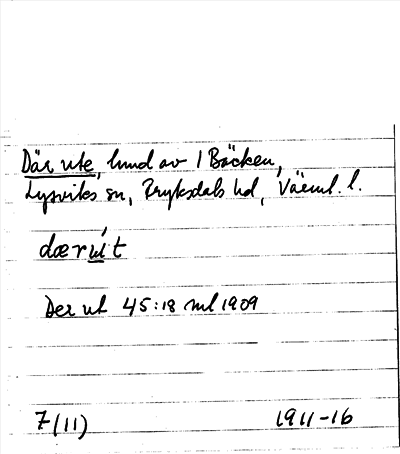 Där ute, hmd av 1 Bäcken,
Lysviks sn, Fryksdals hd, Värml. l.
dærút
Der ut 45:18 ml 1909
7(11)
1911-16